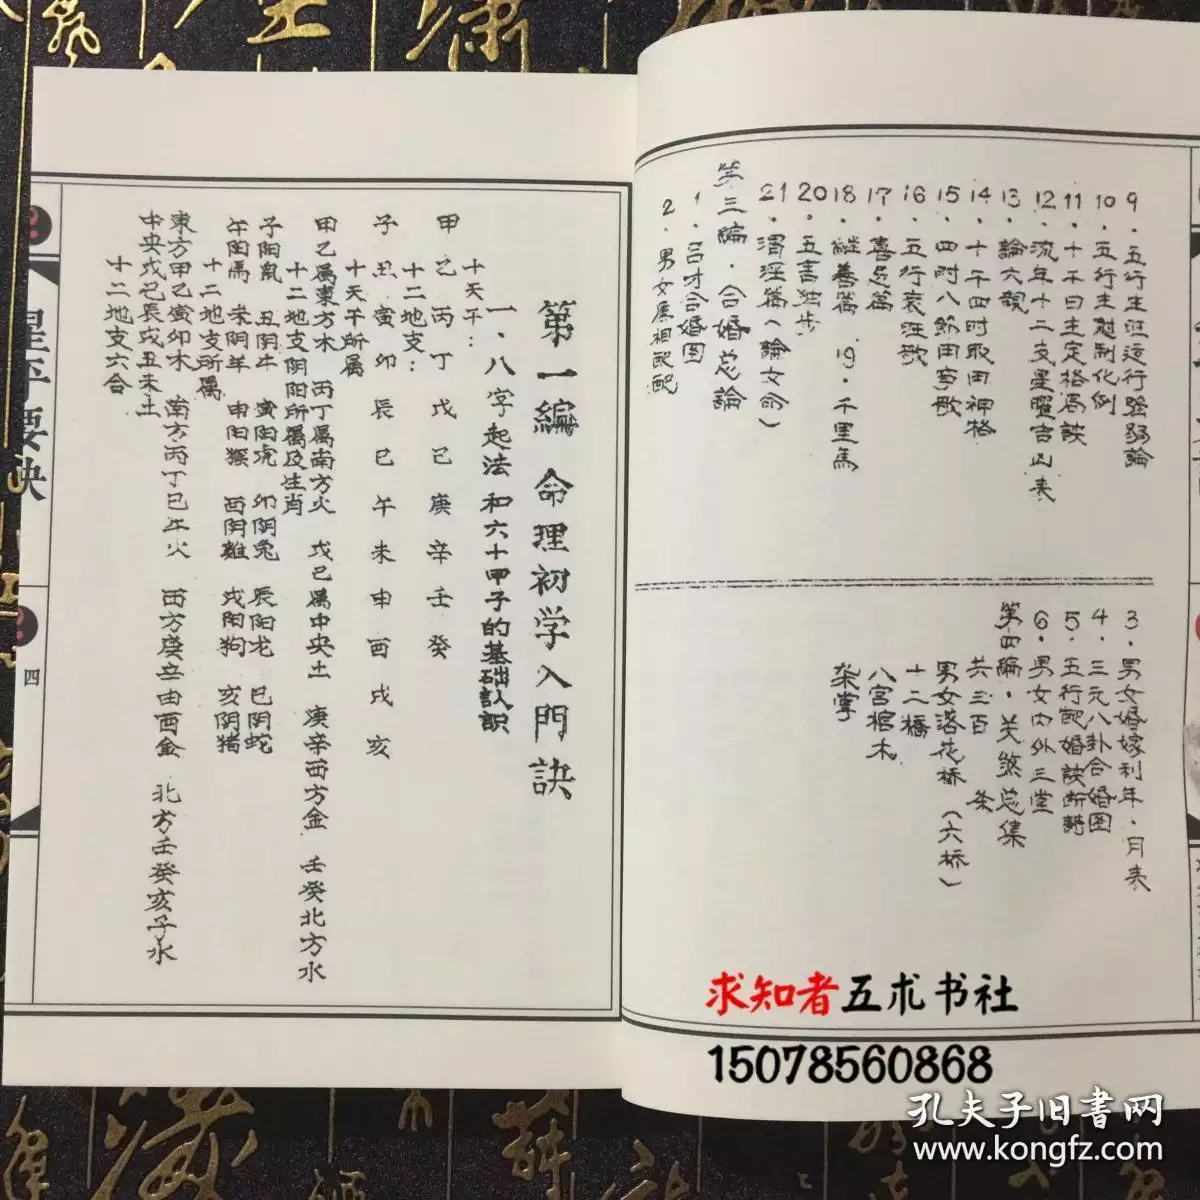 9·五行生旺运行强弱論
10·五行生尅制化例
11·十干日主定格局訣
12·流年十二支星曜吉凶表
13·論六親
14·十干四时取用神格
15·四时八節用事歌
16·五行衰旺歌
17·喜忌篇
18·繼善篇 19·千里馬
20·五言独步
21·渭泾篇(論女命)
第三編·合婚总論
1·吕才合婚图
2·男女屬相配配
3·男女婚嫁利年·月表
4·三元八卦合婚图
5·五行配婚訣断語
6·男女内外三堂
第四編·关煞总集
共三百 条
男女落花桥(六桥)
十二橋
八宫棺木
架掌
第一編 命理初学入門訣
一·八字起法和六十甲子的基础認识
十天干:
甲乙丙丁戊己庚辛壬癸
十二地支:
子丑寅卯辰巳午未申酉戌亥
十天干所属
甲乙属東方木 丙丁属南方火 戊己属中央土 庚辛西方金 壬癸北方水
十二地支阴阳所属及生肖
子阳鼠 丑阴牛 寅阳虎 卯阴兔 辰阳龙 巳阴蛇
午阳馬 未阴羊 申阳猴 酉阴雞 戌阳狗 亥阴猪
十二地支所属
東方甲乙寅卯木 南方丙丁巳午火 西方庚辛申酉金 北方壬癸亥子水
中央戊己辰戌丑未土
十二地支六合
星平要訣
四
求知者五术书社
15078560868
孔夫子旧書网
www.kongfz.com